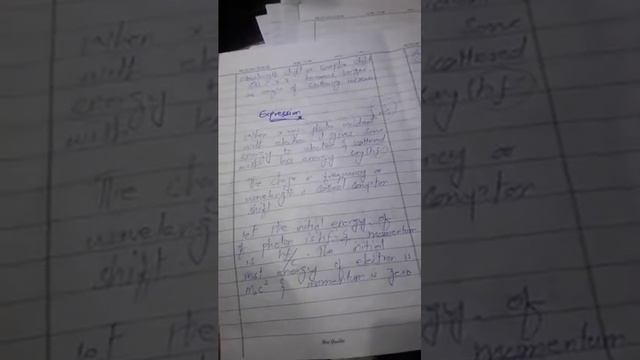 wavelength shift or compton shift
becomes larger
as angle of scattering increases
Expression
when x-ray photon incident
with electron it gives some
energy to electron & scattered
with less energy say (hf')
The change in frequency or
wavelength is called compton
shift
let the initial energy of
photon is hf & momentum
is hf/c. The initial
rest energy of electron is
m₀c² & momentum is zero